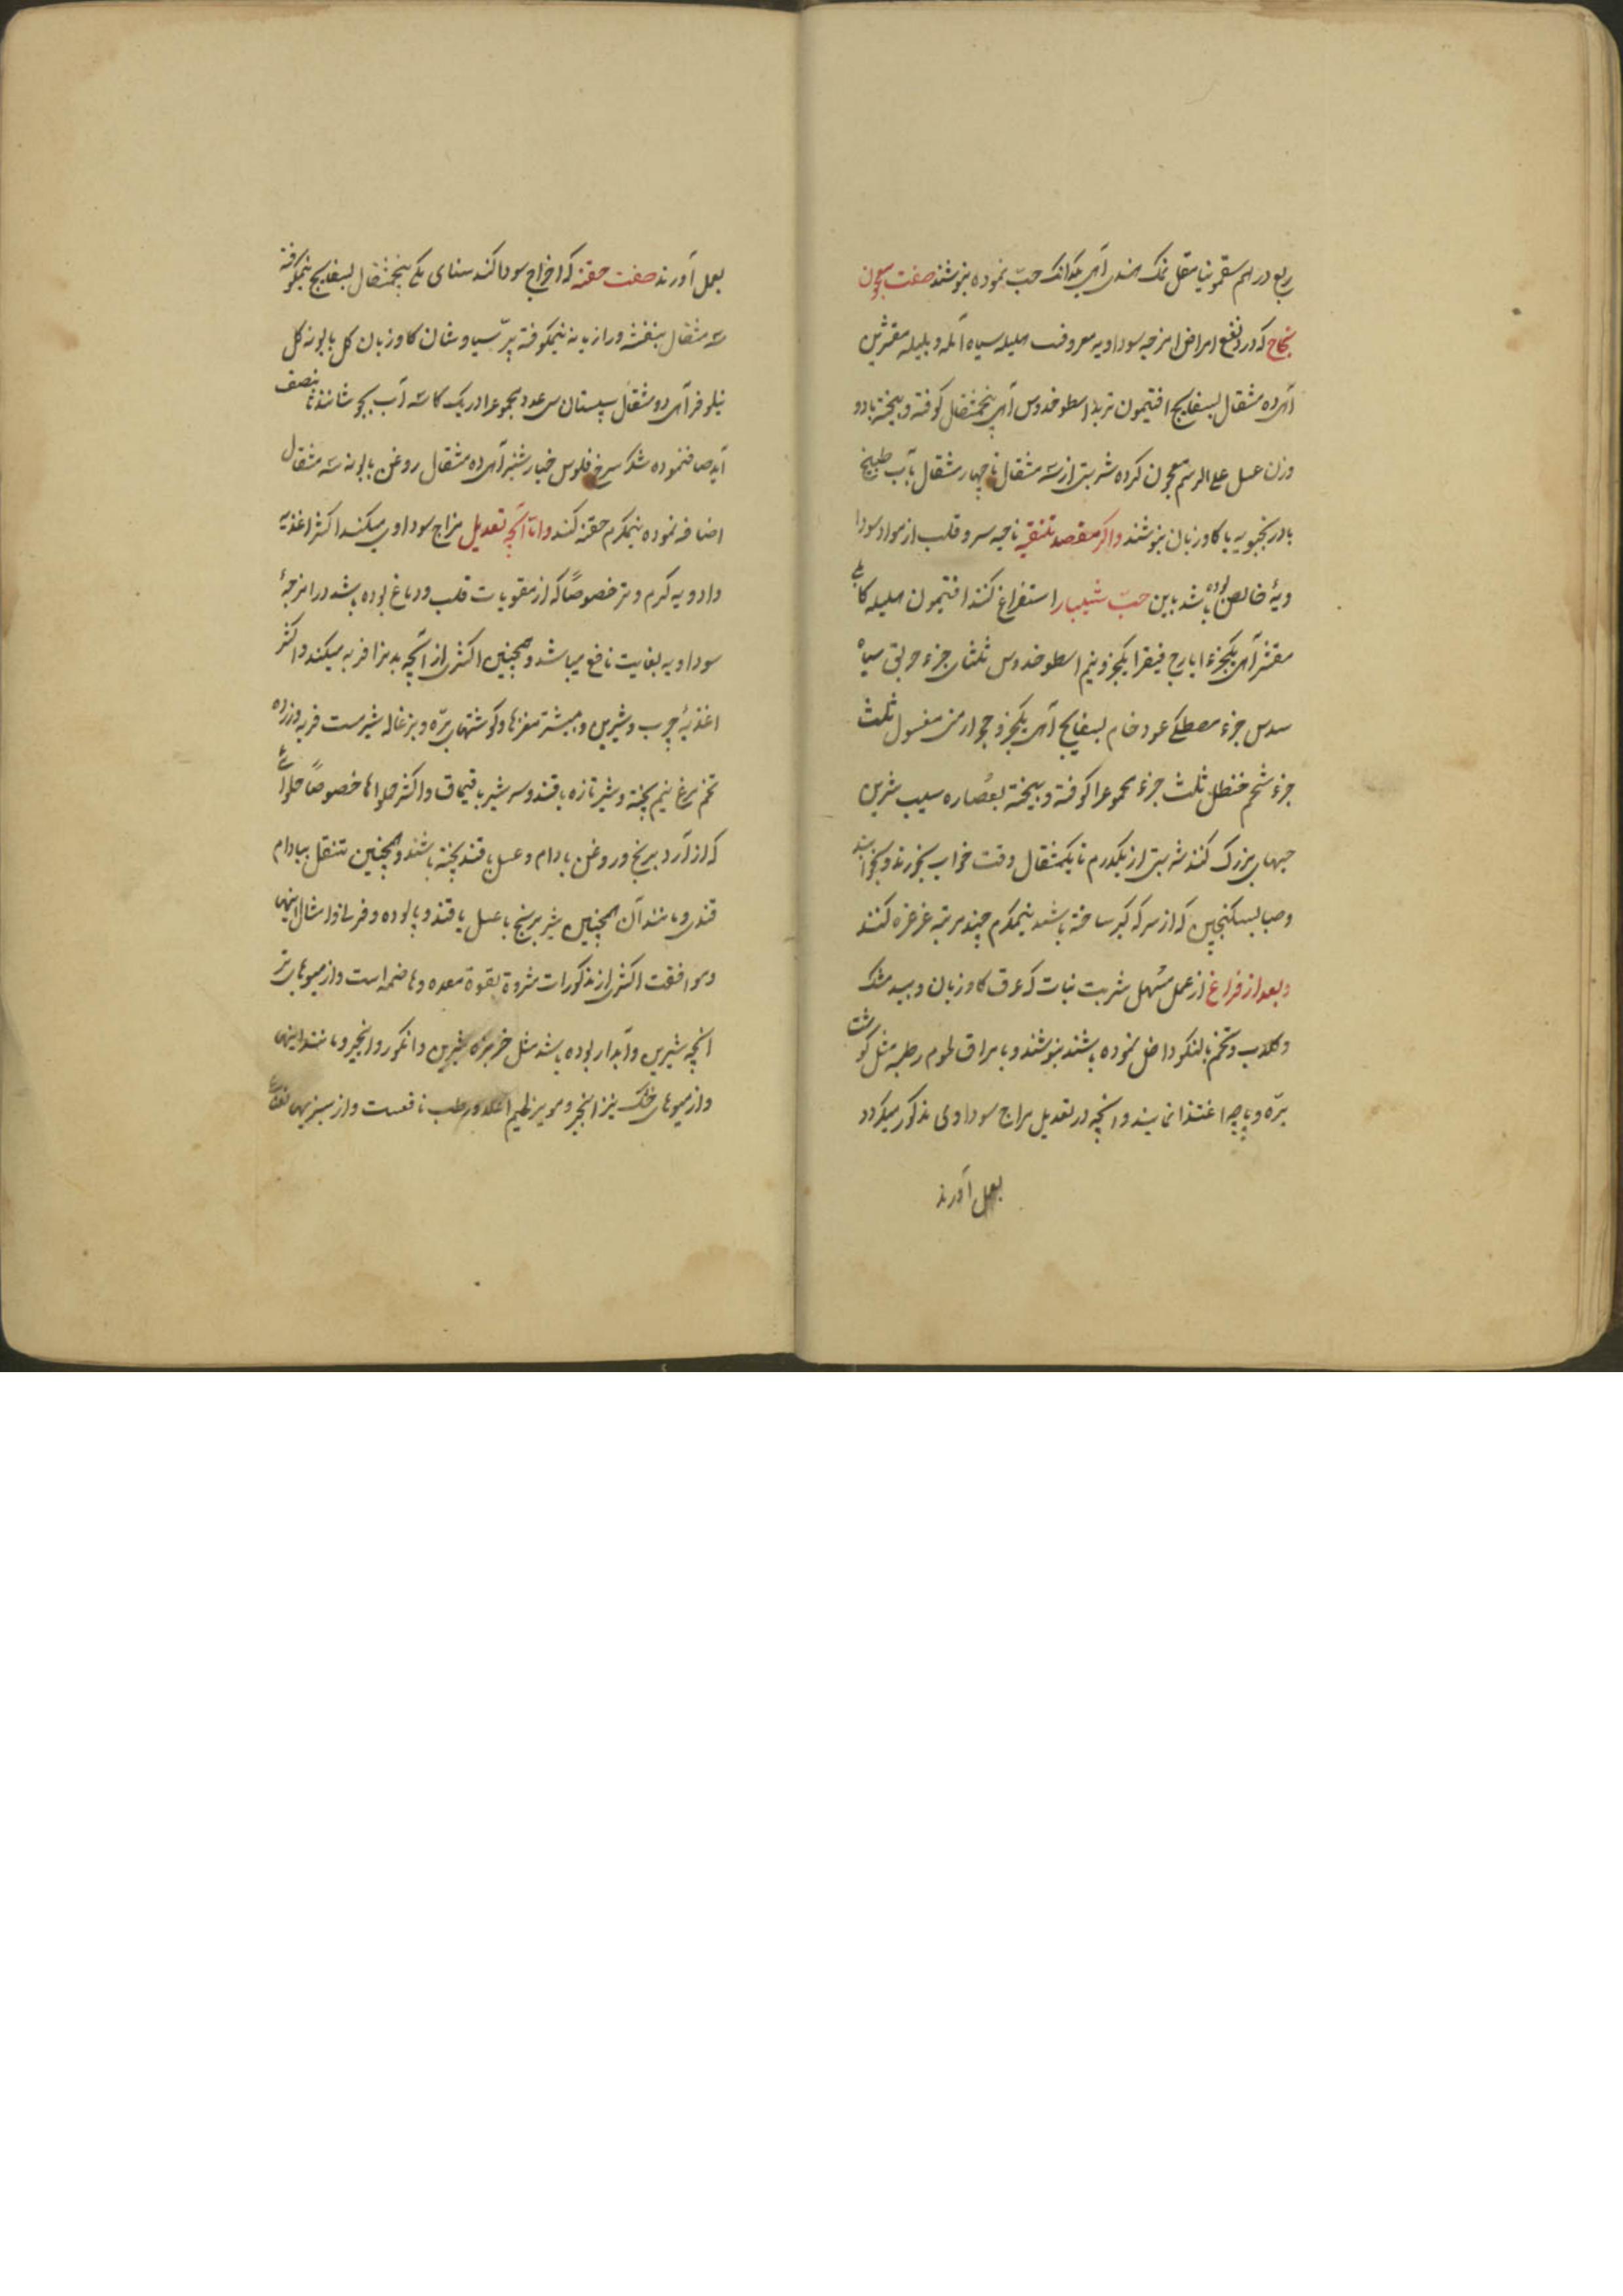 ربع درهم سقمونیا مقل نمک هندی ای یکدانک حب نموده بنوشند صفت معجون
نجاح که در دفع امراض امزجه سوداویه معروفست هلیله سیاه آمله و بلیله مقشرین
ای ده مثقال بسفایج افتیمون تربد اسطوخدوس ای پنجمثقال کوفته و بیخته با دو
وزن عسل علی الرسم معجون کرده شربتی از سه مثقال تا چهار مثقال بآب طبیخ
بادرنجبویه یا کاوزبان بنوشند و اگر مقصد تنقیه ناحیه سر و قلب از مواد سودا
ویهٔ خالص بوده باشد باین حبّ شبیار استفراغ کنند افتیمون هلیله کابلی
مقشر ای یکجزء ایارج فیقرا یکجزو نیم اسطوخدوس ثلثان جزء خربق سیاه
سدس جزء مصطکی عود خام بسفایج ای یکجزو حجر ارمنی مغسول ثلث
جزء شحم حنظل ثلث جزء مجموعرا کوفته و بیخته بعصاره سیب شیرین
حبهای بزرک کنند شربتی از یکدرم تا یکمثقال وقت خواب بخورند و بخوابند
و صباح بسکنجبین که از سرکه کبر ساخته باشند نیمکرم چند مرتبه غرغره کنند
و بعد از فراغ از عمل مسهل شربت نبات که عرق کاوزبان و بیدمشک
و کلاب و تخم بالنکو داخل نموده باشند بنوشند و بامراق لحوم رطبه مثل کوشت
برّه و پاچه اغتذا نمایند و انچه در تعدیل مزاج سوداوی مذکور میکردد
بعمل آورند
بعمل آورند صفت حقنه که اخراج سودا کند سنای مکی پنجمثقال بسفایج نیمکوفته
سه مثقال بنفشه و رازیانه نیمکوفته پرّ سیاوشان کاوزبان کل بابونه کل
نیلوفر ای دو مثقال سپستان سی عدد مجموعرا در یک کاسه آب بجوشانند تا بنصف
آید صاف نموده شکر سرخ فلوس خیارشنبر ای ده مثقال روغن بابونه سه مثقال
اضافه نموده نیمکرم حقنه کنند و اما آنچه تعدیل مزاج سوداوی میکند اکثر اغذیه
و ادویه کرم و تر خصوصاً که از مقویات قلب و دماغ بوده باشد در امزجهٔ
سوداویه بغایت نافع میباشد و همچنین اکثری از آنچه بدنرا فربه میکند و اکثر
اغذیهٔ چرب و شیرین و بیشتر مغزها و کوشتهای برّه و بزغاله شیرمست فربه و زرده
تخم مرغ نیم پخته و شیر تازه با قند و سر شیر با قیماق و اکثر حلواها خصوصاً حلوائی
که از آرد برنج و روغن بادام و عسل یا قند پخته باشند و همچنین تنقل ببادام
قندی و مانند آن همچنین شیر برنج با عسل یا قند و پالوده و فرنی و امثال اینها
و موافقت اکثری از مذکورات مشروط بقوة معده و هاضمه است و از میوهای تر
انچه شیرین و آبدار بوده باشد مثل خربزه شیرین و انکور و انجیر و مانند اینها
و از میوهای خشک نیز انجیر و مویز نافعست و از سبزیها نعناع